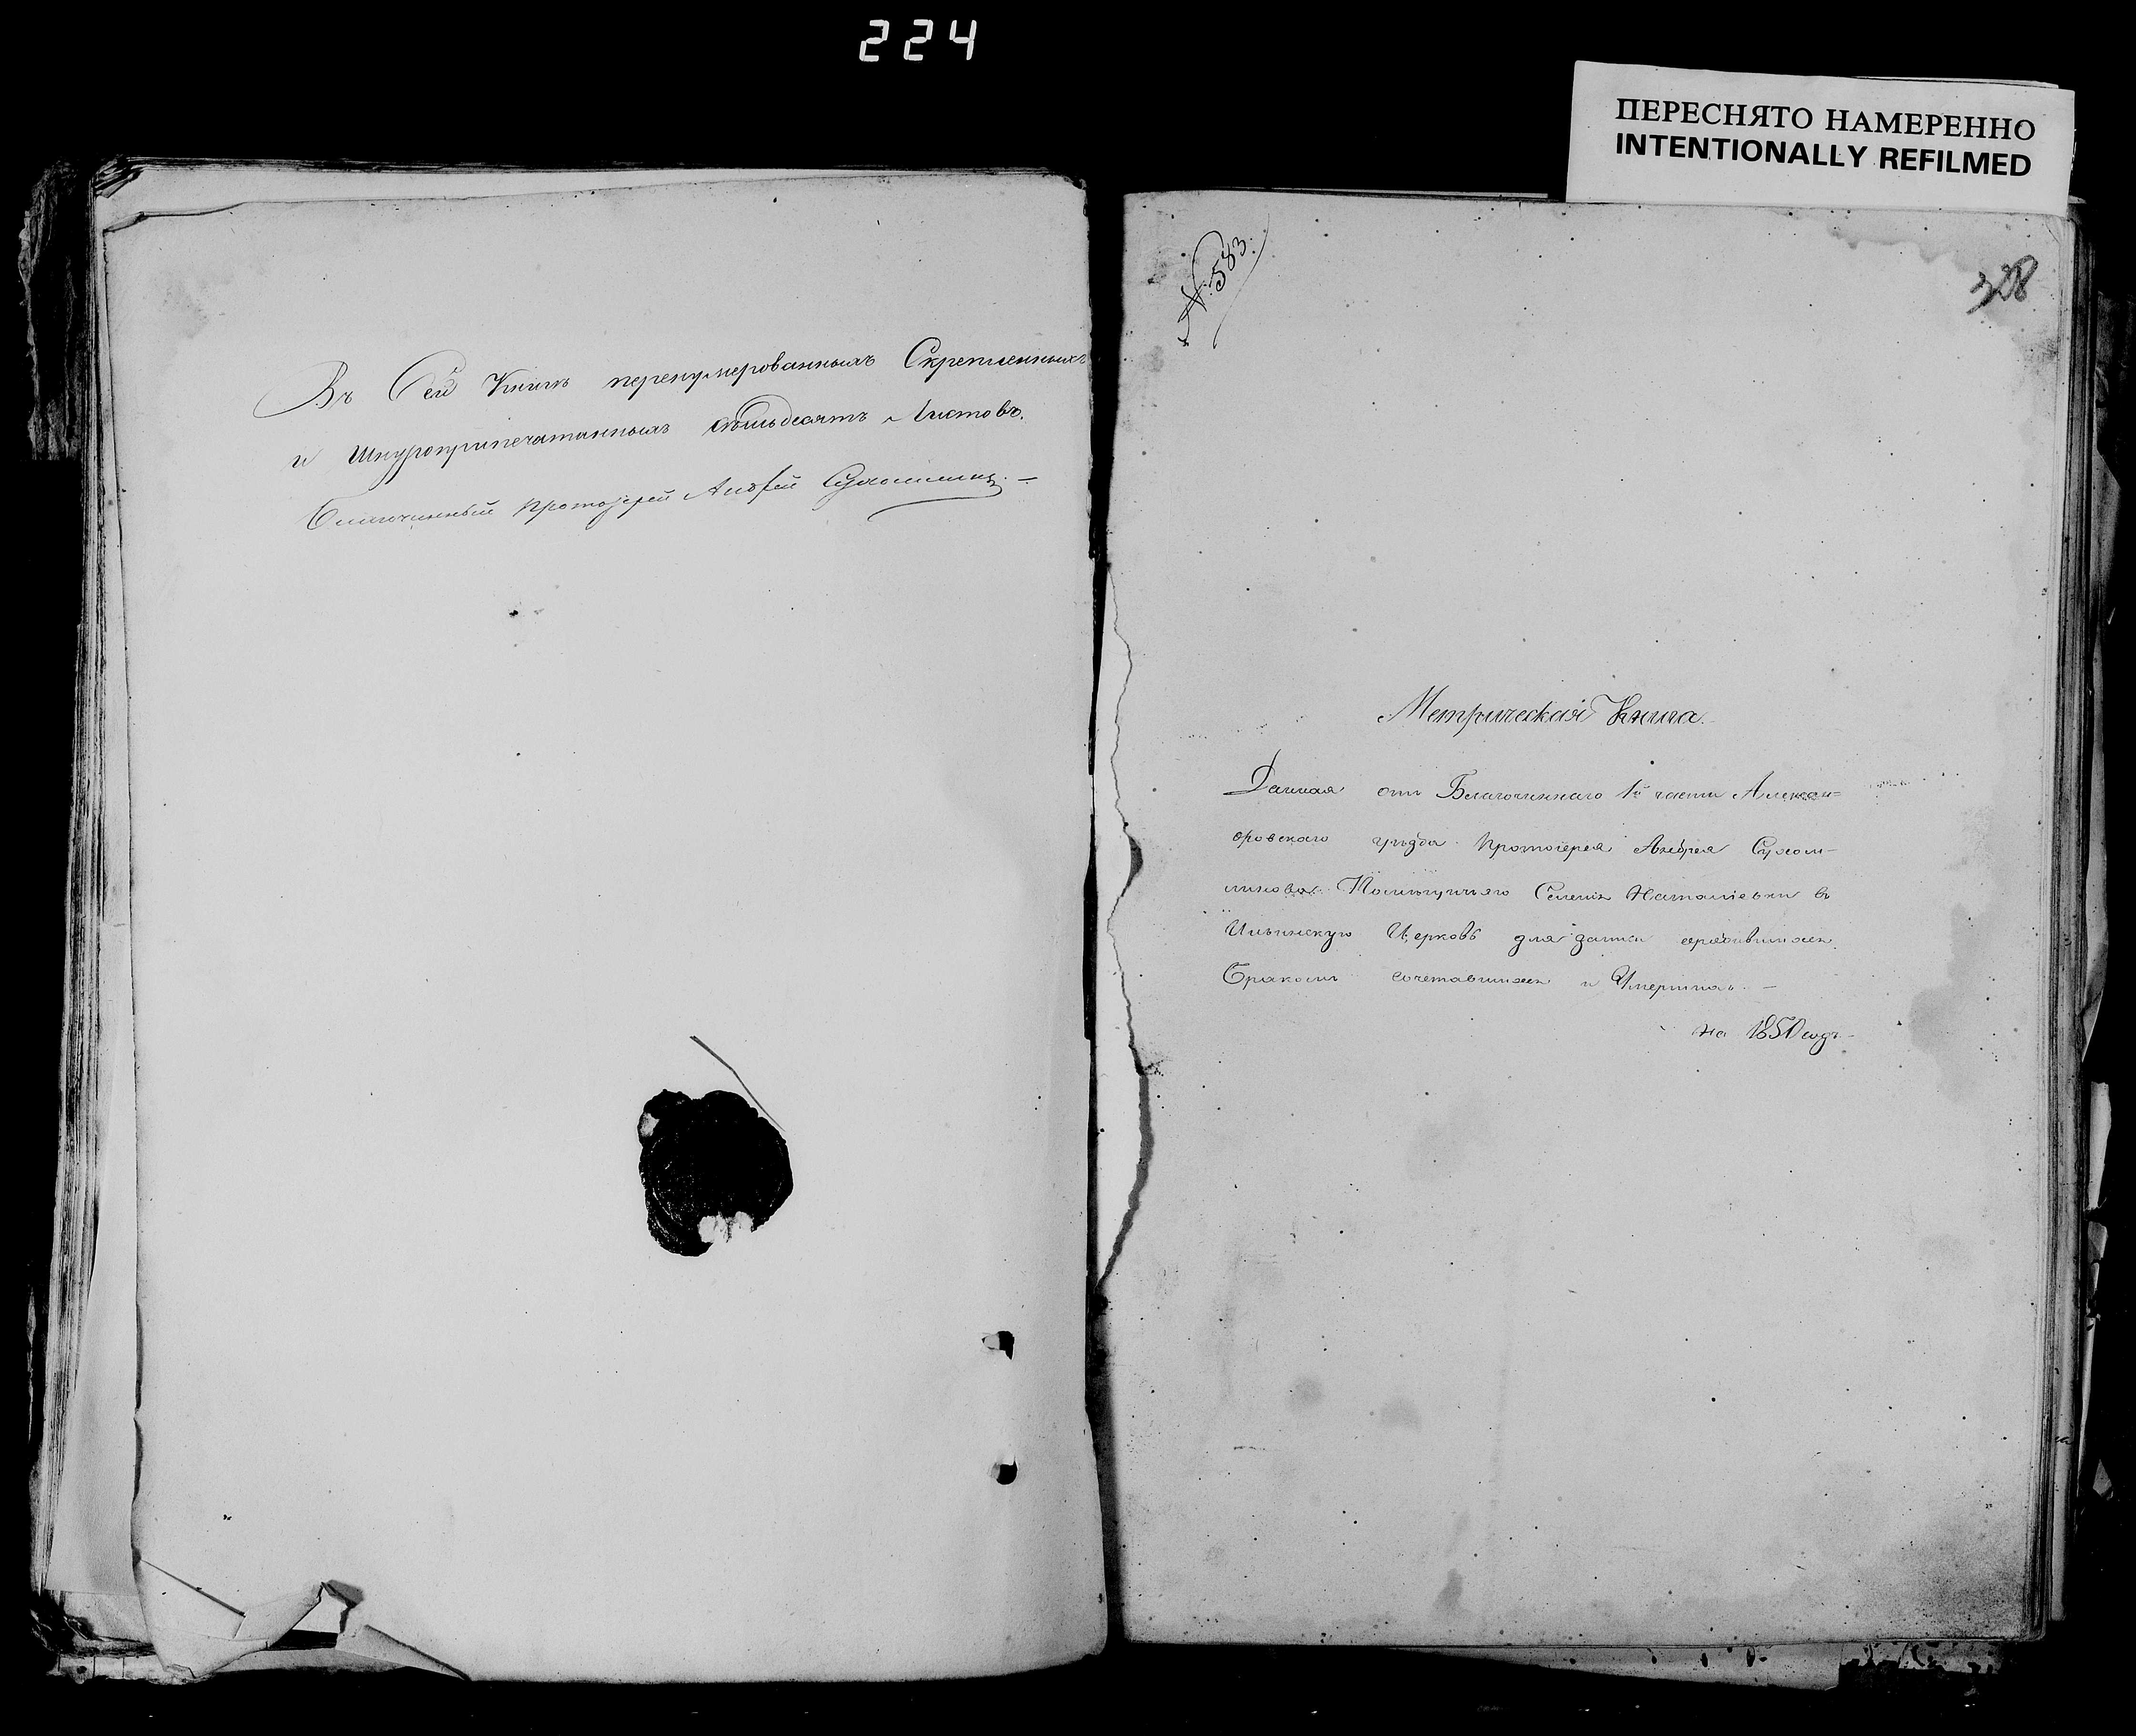 224
ПЕРЕСНЯТО НАМЕРЕННО
INTENTIONALLY REFILMED
Въ Сей Книгѣ перенумерованныхъ Скрепленныхъ
и Шнуроприпечатанныхъ листовъ.
Благочинный Протоіерей Андрей Сухомлинов. —
№ 583.
328
Метрическая Книга.
Данная отъ Благочиннаго 1й части Алексан=
дровскаго уѣзда Протоіерея Андрея Сухом-
линова Селенія Наталіевки въ
Ильинскую Церковь для записи родившихся
Бракомъ сочетавшихся и Умершихъ. —
на 1850 годъ